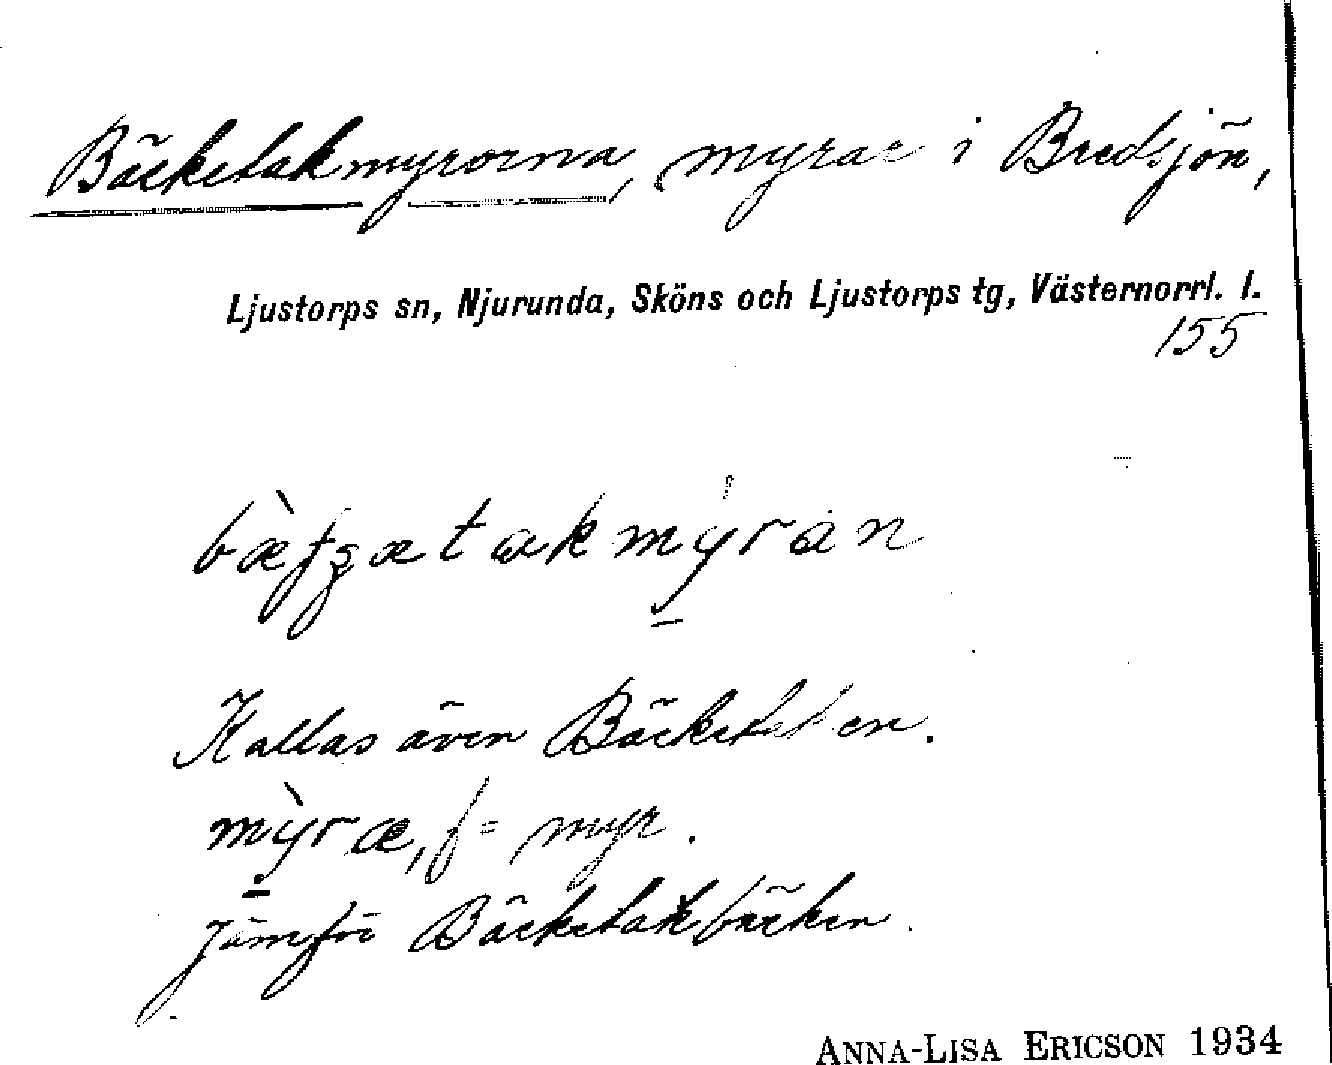 Bäcketakmyrorna, myrar i Bredsjön,
Ljustorps sn, Njurunda, Sköns och Ljustorps tg, Västernorrl. l.
155
Kallas även Bäcketaken.
mỳræ, f = myr.
jämför Bäcketakbäcken.
ANNA-LISA ERICSON 1934